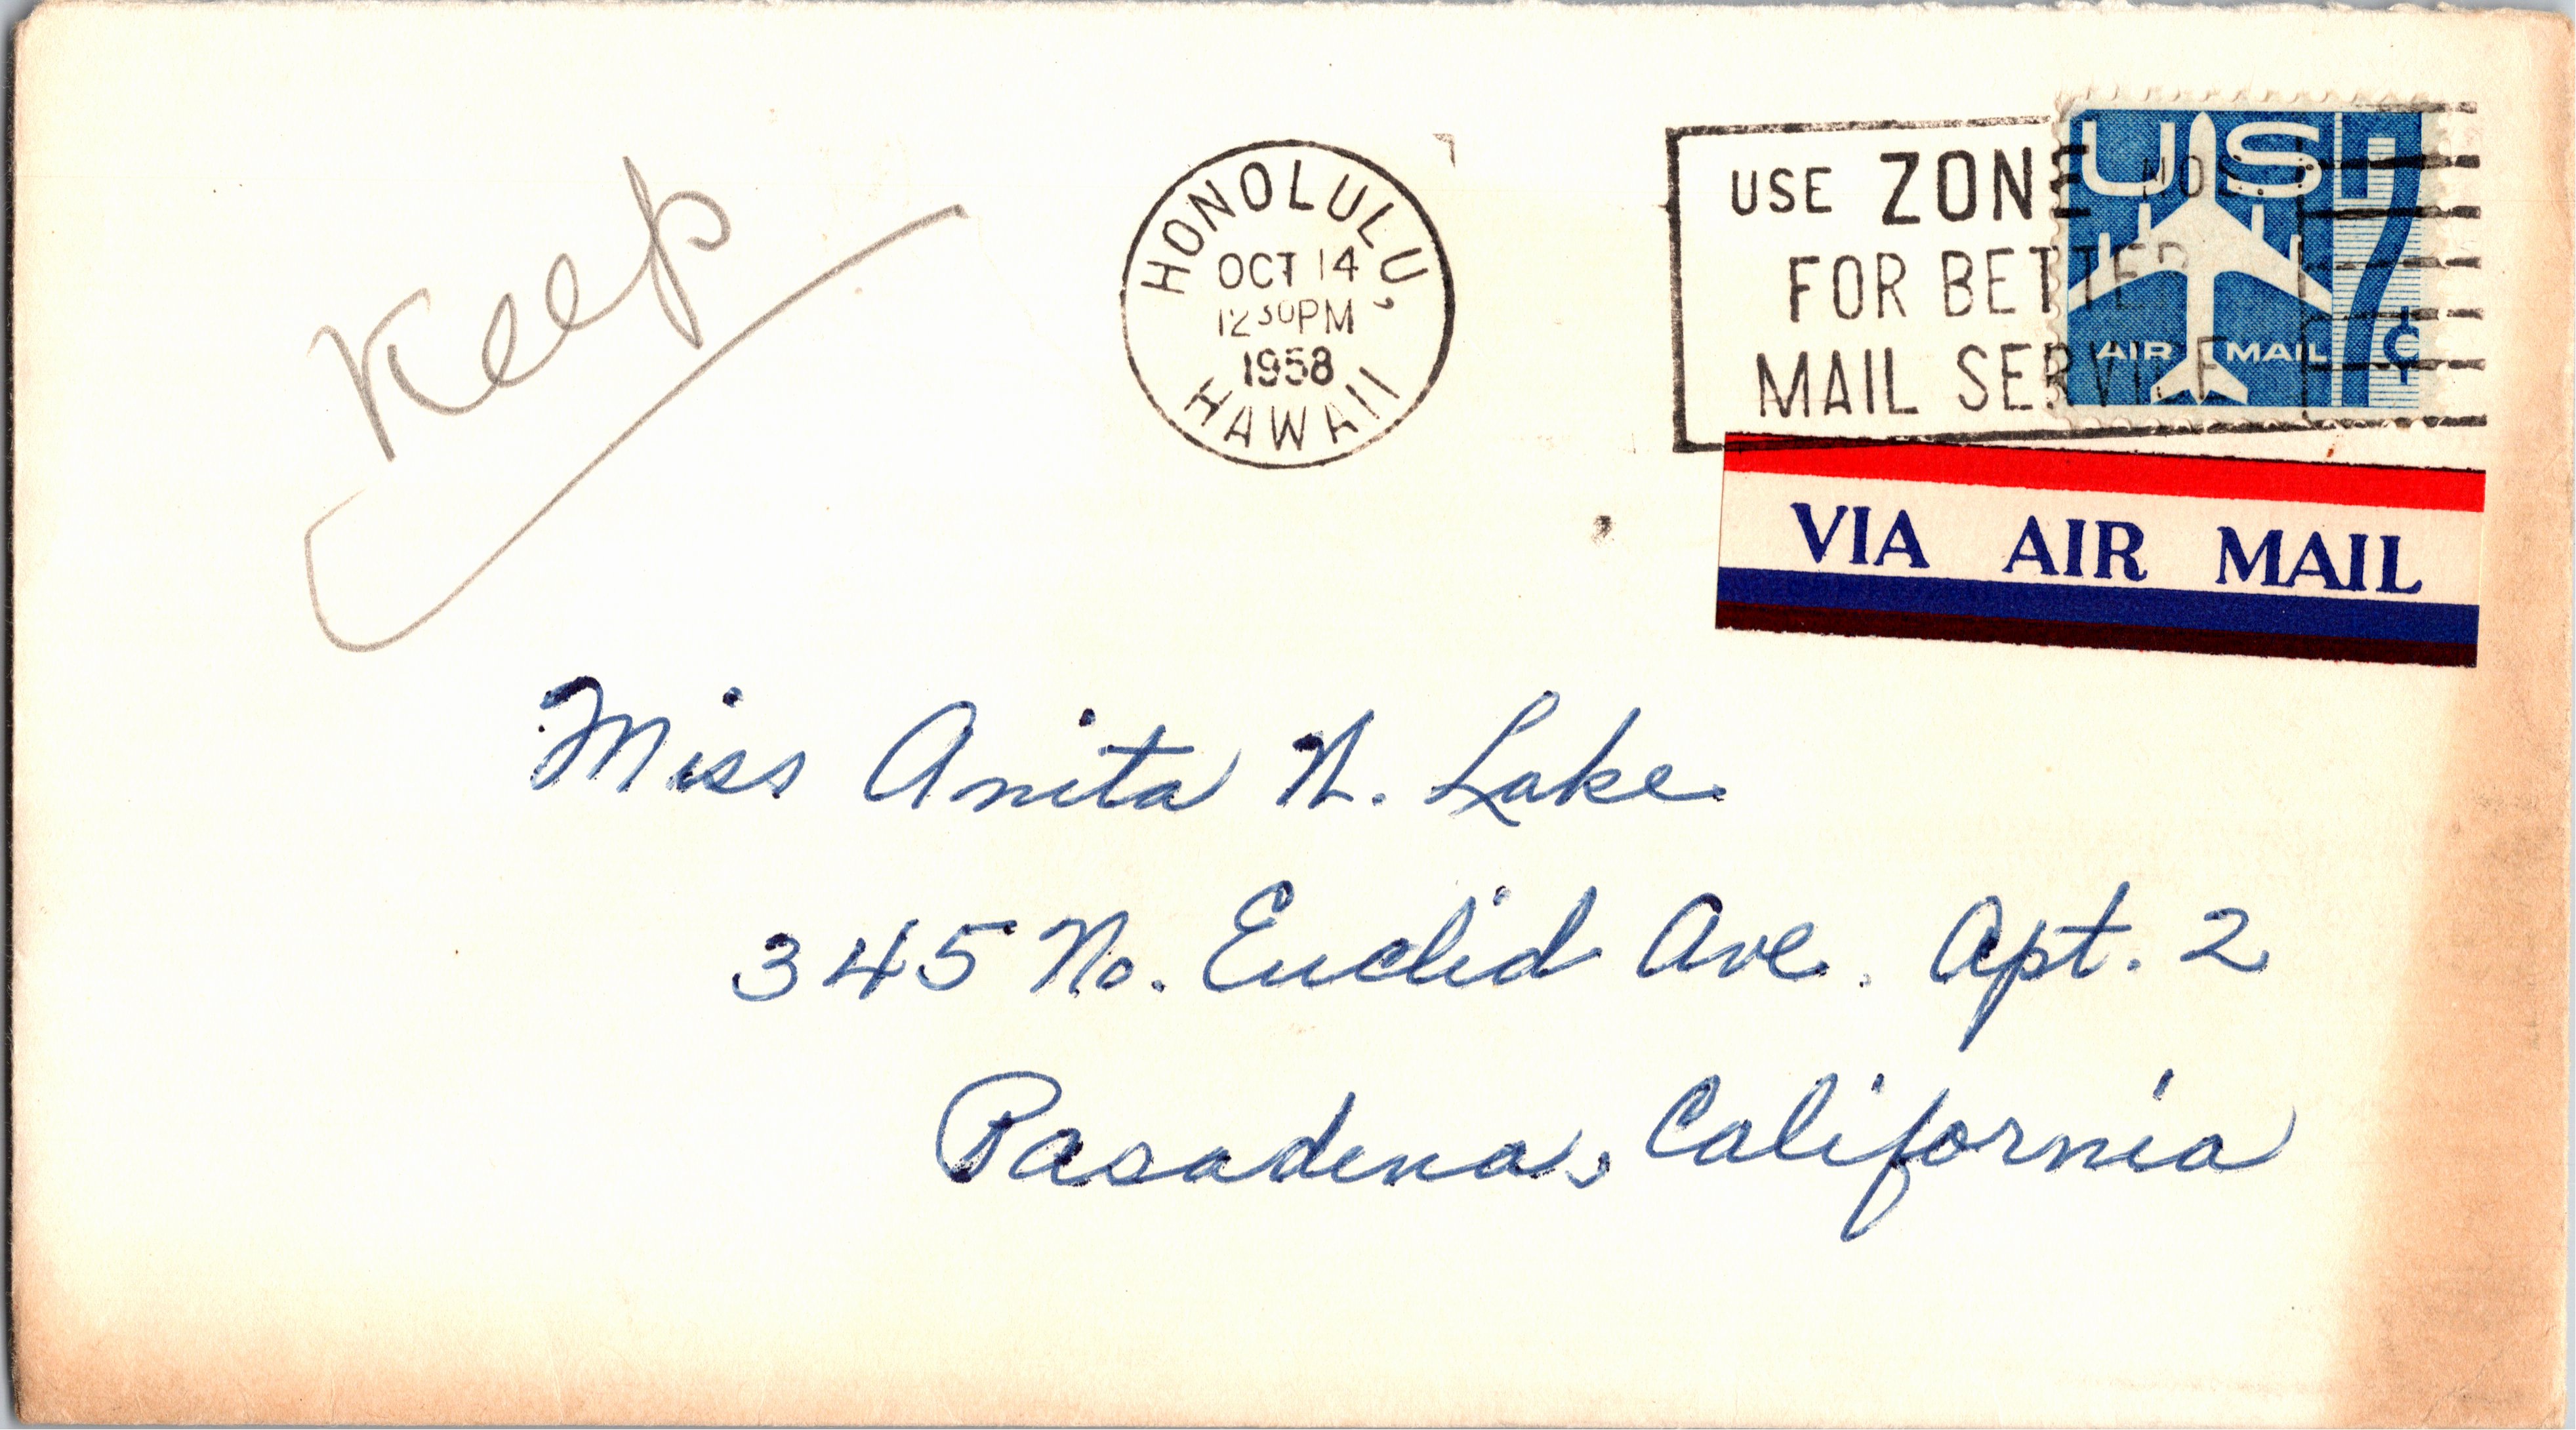 Keep
HONOLULU,
OCT 14
12 30 PM
1958
HAWAII
USE ZONE NOS.
FOR BETTER
MAIL SERVICE
US 7¢
AIR MAIL
VIA AIR MAIL
Miss Anita N. Lake
345 No. Euclid Ave. Apt. 2
Pasadena, California